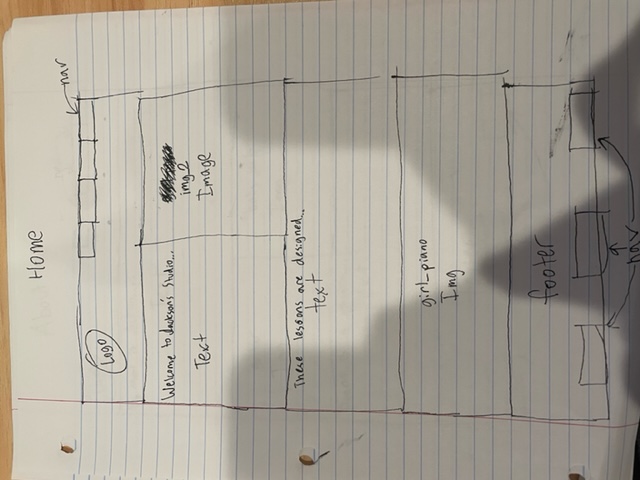 Home
nav
Logo
Welcome to Jackson's Studio...
Text
img_2
Image
These lessons are designed...
text
girl_piano
Img
footer
nav